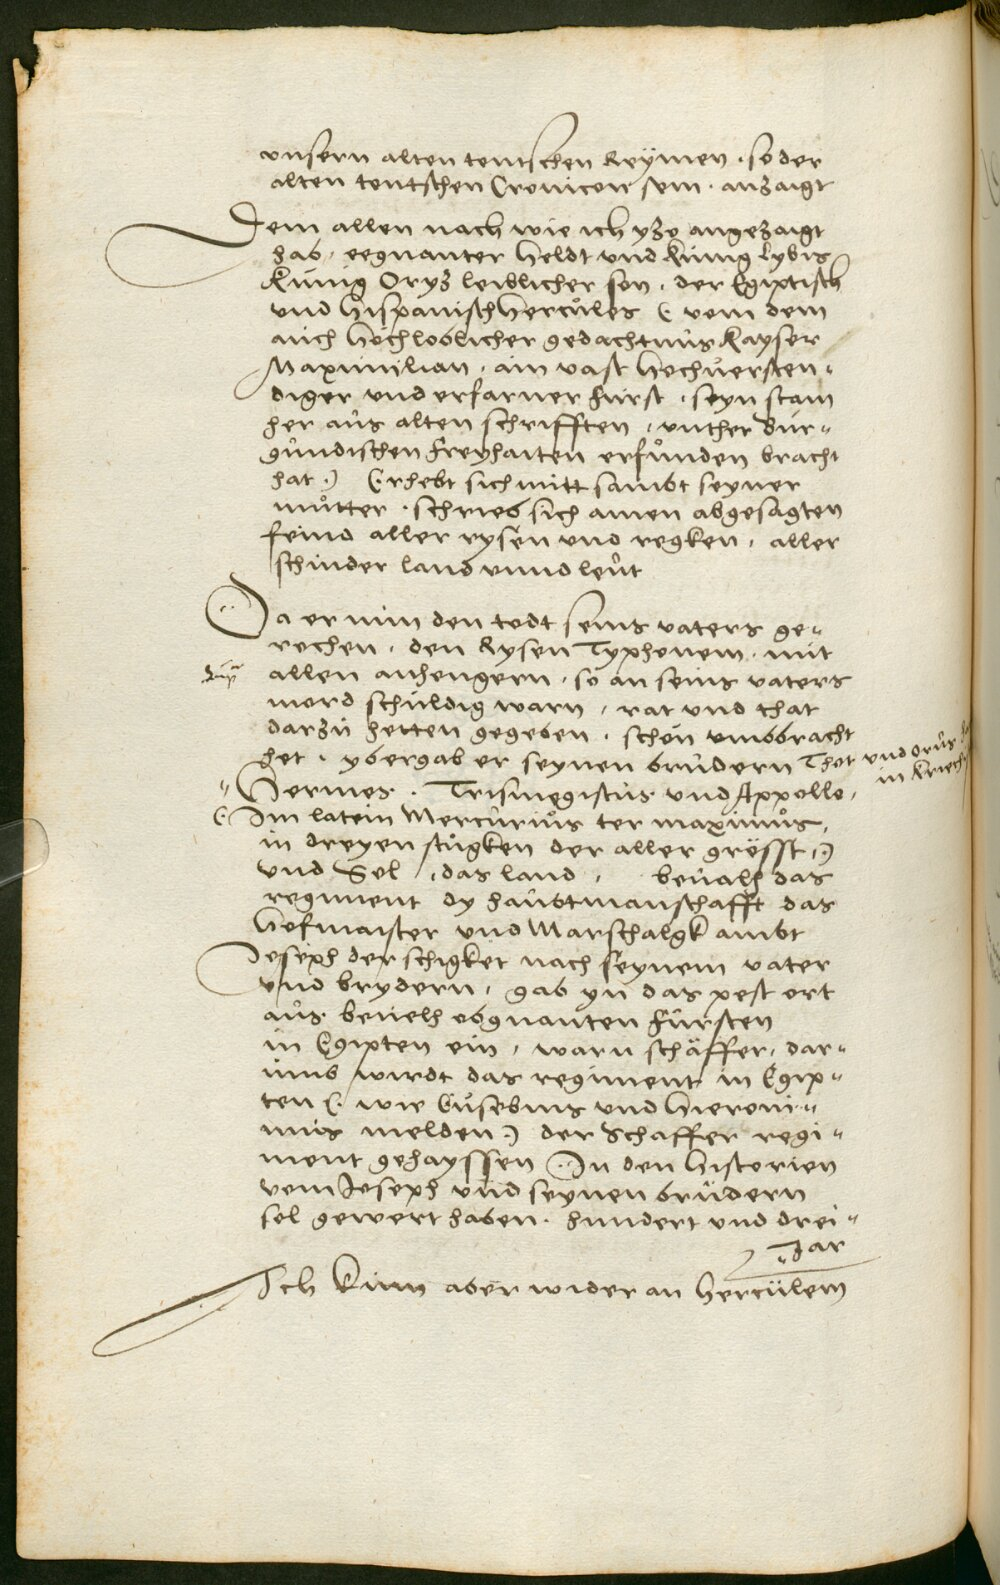 vnsern alten teutschen Reymen . so der
alten teutschen Cronicon sein . anzaigt
Dem allen nach wie ich yze angezaigt
hab , eegnanter heldt vnd künig Lybis
künig Oryz leiblicher son , der Egiptisch
vnd hispanisch Hercůles ( von dem
auch hochloblicher gedachtnus kayser
Maximilian , ain vast hochůersten-
diger vnd erfarner fürst , seyn stam
her aus alten schrifften , vnther bur-
gundischen freyhaiten erfůnden bracht
hat .) Erhebt sich mitt sambt seyner
můtter . schrieb sich ainen abgesagten
feind aller rysen vnd regken , aller
schinder land vnnd leůt
Da er nun den todt seins vaters ge-
rochen , den Rysen Typhonem , mit
allen anhengern , so an seins vaters
mord schuldig warn , rat vnd that
darzu hetten gegeben . schon vmbbracht
het , ybergab er seynen brůdern Thot vnd orůs
in kriech
Hermes . Trismegistůs vnd Appollo ,
( Im latein Mercuriůs ter maximůs ,
in dreyen stůgken der aller grösst ,)
vnd Sol , das land , beualh das
regiment dy haubtmanschafft das
hofmaister vnd Marschalgk ambt
Joseph der schigket nach seynem vater
vnd brydern , gab yn das pest ort
aůs beuelh obgnanten fürsten
in Egipten ein , warn schäffer , dar-
umb wirdt das regiment in Egip-
ten ( wie Eůsebius vnd Hieroni-
mus melden ) der Schaffer regi-
ment gehayssen In den historien
vom Joseph vnd seynen brůdern
sol gewert haben . hundert vnd drei-
Jar
Ich kum aber wider an Hercülem